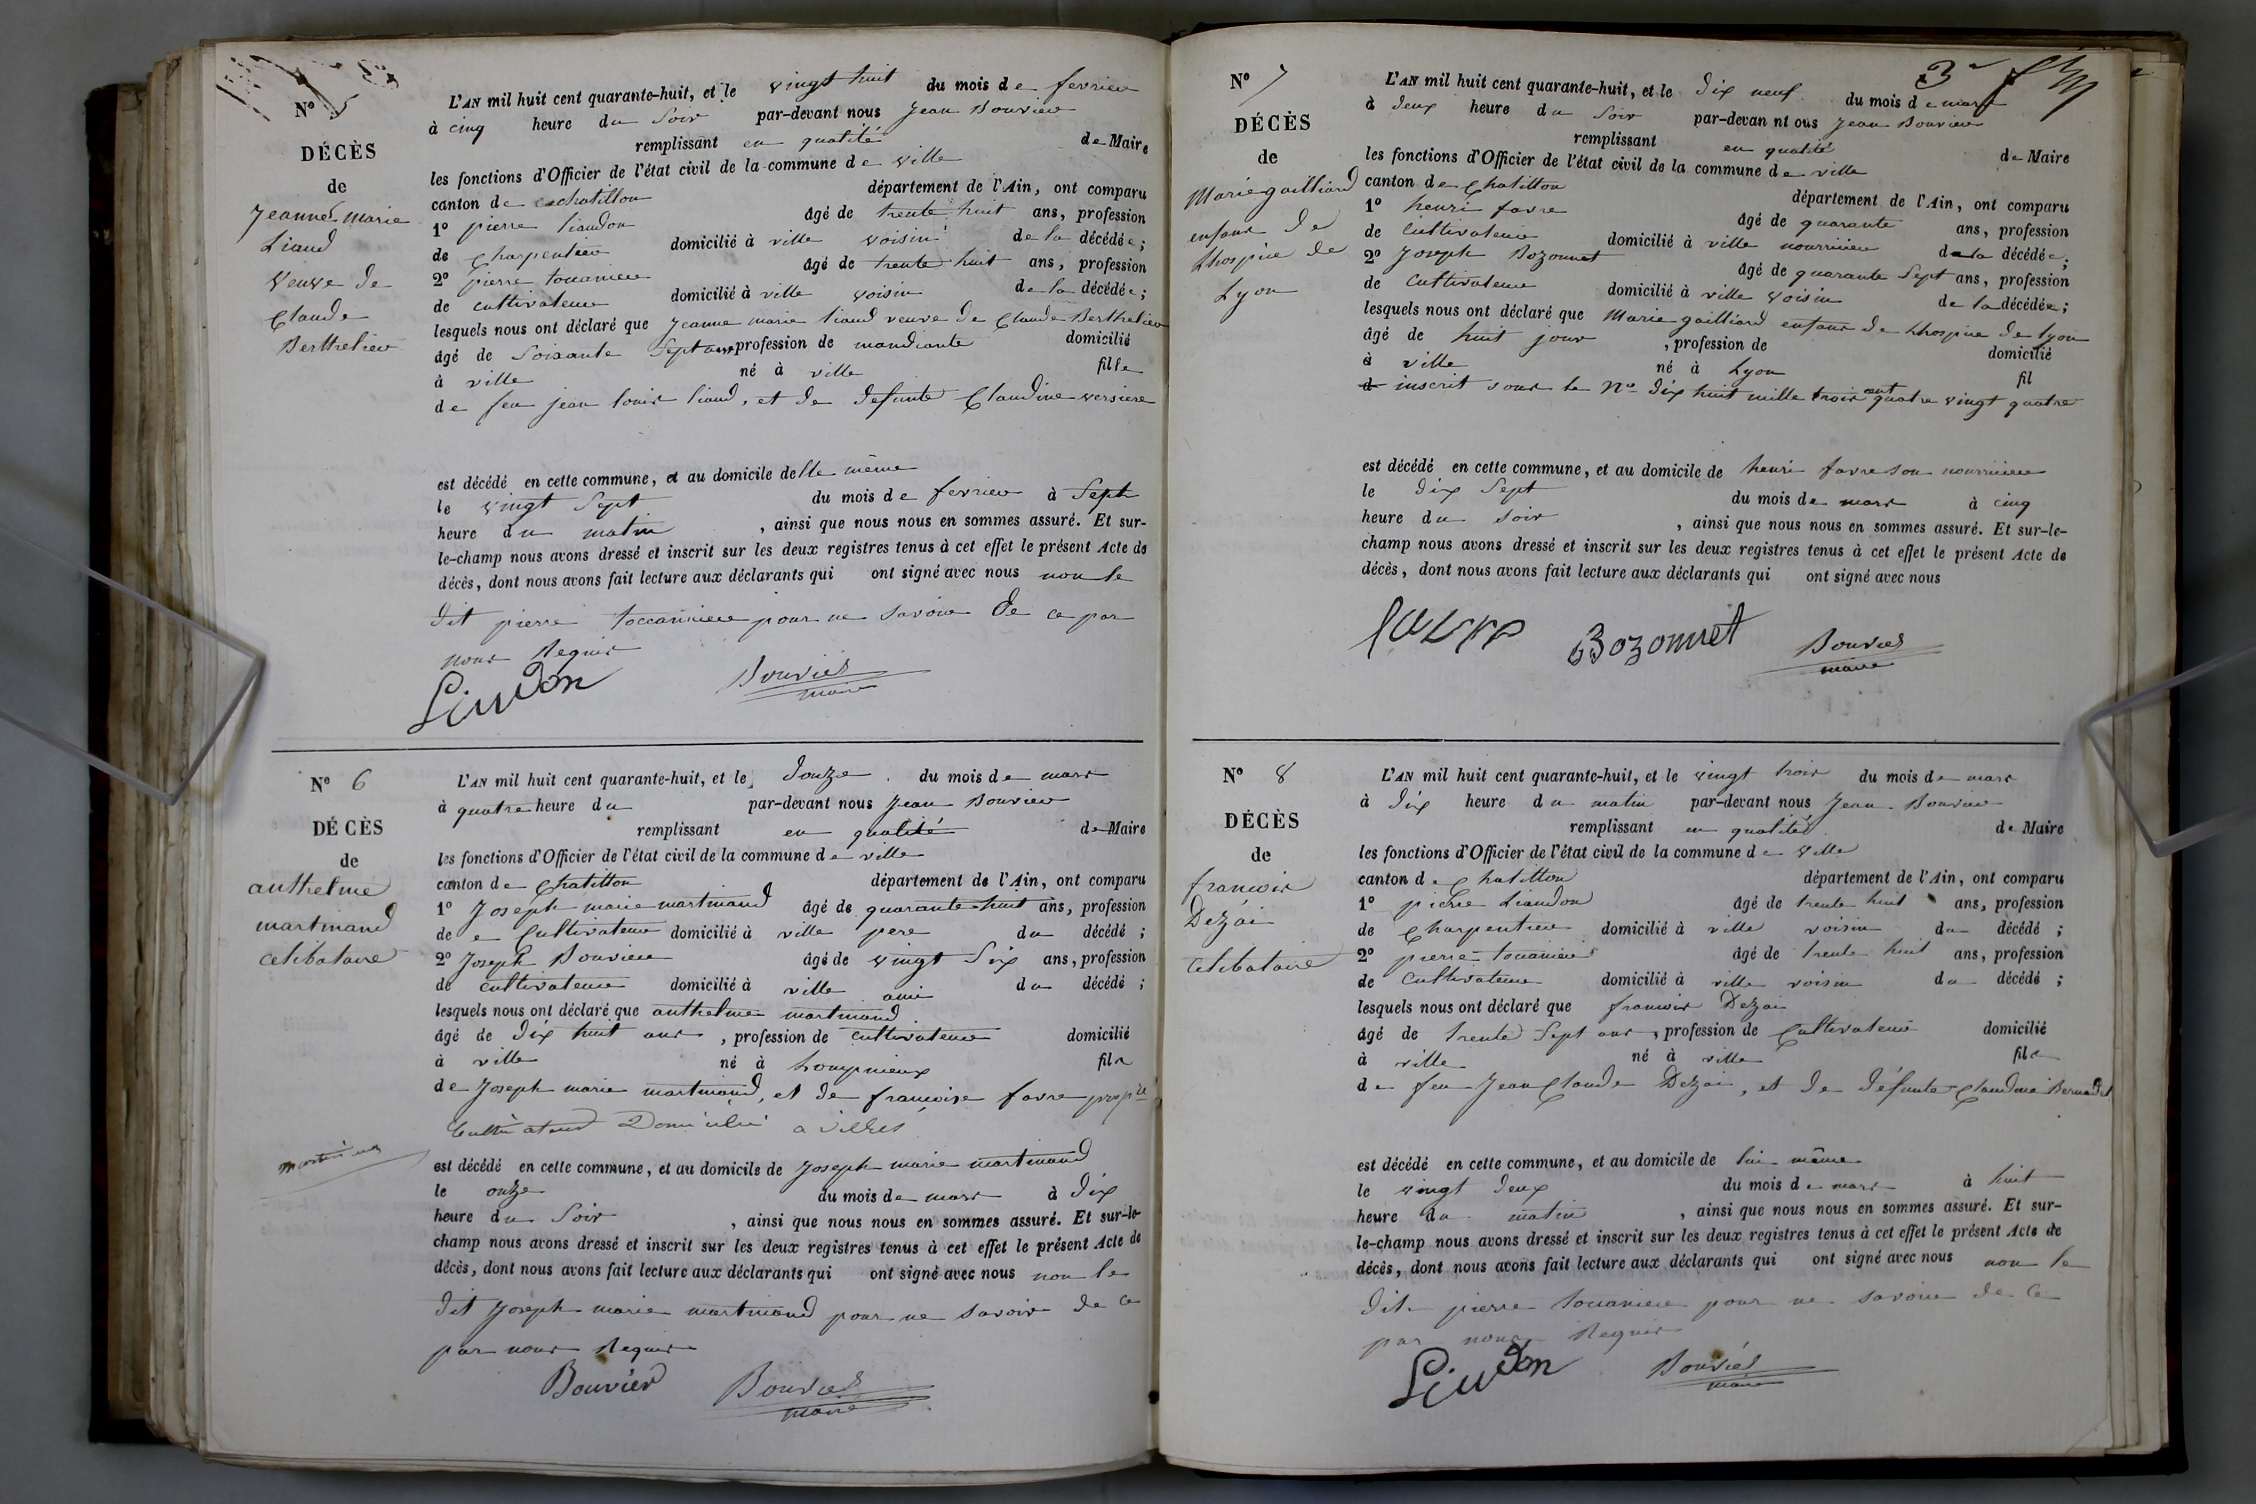 N° 5
DÉCÈS
de
Jeanne marie
Liaud
veuve de
Claude
Berthelier
L'AN mil huit cent quarante-huit, et le vingt huit du mois de fevrier
à cinq heure du Soir par-devant nous Jean Bouvier
remplissant en qualité de Maire
les fonctions d'Officier de l'état civil de la commune de ville
canton de chatillon département de l'Ain, ont comparu
1° pierre liaudon âgé de trente huit ans, profession
de Charpentier domicilié à ville voisin de la décédée;
2° pierre âgé de trente huit ans, profession
de cultivateur domicilié à ville voisin de la décédée;
lesquels nous ont déclaré que Jeanne marie liaud veuve de Claude Berthelier
âgé de Soixante Sept ans profession de mandiante domicilié
à ville né à ville fille
de feu jean louis liaud, et de defunte Claudine versiere
est décédé en cette commune, et au domicile delle même
le vingt Sept du mois de fevrier à Sept
heure du matin, ainsi que nous nous en sommes assuré. Et sur-
le-champ nous avons dressé et inscrit sur les deux registres tenus à cet effet le présent Acte de
décès, dont nous avons fait lecture aux déclarants qui ont signé avec nous non le
dit pierre pour ne Savoir de ce par
nous Requis
Liaudon Bouvier
maire
N° 6
DÉCÈS
de
anthelme
martinand
celibataire
L'AN mil huit cent quarante-huit, et le douze du mois de mars
à quatre heure du par-devant nous Jean Bouvier
remplissant en qualité de Maire
les fonctions d'Officier de l'état civil de la commune de ville
canton de Chatillon département de l'Ain, ont comparu
1° Joseph marie martinand âgé de quarante-huit ans, profession
de Cultivateur domicilié à ville pere du décédé;
2° Joseph Bouvier âgé de vingt Six ans, profession
de cultivateur domicilié à ville ami du décédé;
lesquels nous ont déclaré que anthelme martinand
âgé de dix huit ans, profession de cultivateur domicilié
à ville né à hompnieux fils
de Joseph marie martinand, et de francoise favre
Cultivateurs Domicilié a villes
martinand
est décédé en cette commune, et au domicile de Joseph marie martinand
le onze du mois de mars à dix
heure du Soir, ainsi que nous nous en sommes assuré. Et sur-le-
champ nous avons dressé et inscrit sur les deux registres tenus à cet effet le présent Acte de
décès, dont nous avons fait lecture aux déclarants qui ont signé avec nous non le
dit Joseph marie martinand pour ne savoir de ce
par nous Requis
Bouvier Bouvier
maire
N° 7
DÉCÈS
de
Marie gailliard
enfant de
Lhospice de
Lyon
L'AN mil huit cent quarante-huit, et le dix neuf du mois de mars
à deux heure du Soir par-devan nt ous Jean Bouvier
remplissant en qualité de Maire
les fonctions d'Officier de l'état civil de la commune de ville
canton de Chatillon département de l'Ain, ont comparu
1° henri favre âgé de quarante ans, profession
de Cultivateur domicilié à ville nourricier de la décédée;
2° Joseph Bozonnet âgé de quarante Sept ans, profession
de Cultivateur domicilié à ville voisin de la décédée;
lesquels nous ont déclaré que Marie gailliard enfant de Lhospice de lyon
âgé de huit jour, profession de domicilié
à ville né à Lyon fil
d inscrit sous le N° dix huit mille trois cent quatre vingt quatre
est décédé en cette commune, et au domicile de henri favre son nourricier
le dix Sept du mois de mars à cinq
heure du soir, ainsi que nous nous en sommes assuré. Et sur-le-
champ nous avons dressé et inscrit sur les deux registres tenus à cet effet le présent Acte de
décès, dont nous avons fait lecture aux déclarants qui ont signé avec nous
favre Bozonnet Bouvier
maire
N° 8
DÉCÈS
de
francois
Dezai
celibataire
L'AN mil huit cent quarante-huit, et le vingt trois du mois de mars
à dix heure du matin par-devant nous Jean Bouvier
remplissant en qualité de Maire
les fonctions d'Officier de l'état civil de la commune de ville
canton de Chatillon département de l'Ain, ont comparu
1° pierre Liaudon âgé de trente huit ans, profession
de Charpentier domicilié à ville voisin du décédé;
2° pierre âgé de trente huit ans, profession
de Cultivateur domicilié à ville voisin du décédé;
lesquels nous ont déclaré que francois Dezai
âgé de trente Sept ans, profession de Cultivateur domicilié
à ville né à ville fils
de feu Jean Claude Dezai, et de défunte Claudine Bernadet
est décédé en cette commune, et au domicile de lui-même
le vingt deux du mois de mars à huit
heure du matin, ainsi que nous nous en sommes assuré. Et sur-
le-champ nous avons dressé et inscrit sur les deux registres tenus à cet effet le présent Acte de
décès, dont nous avons fait lecture aux déclarants qui ont signé avec nous non le
dit pierre pour ne savoir de ce
par nous Requis
Liaudon Bouvier
maire